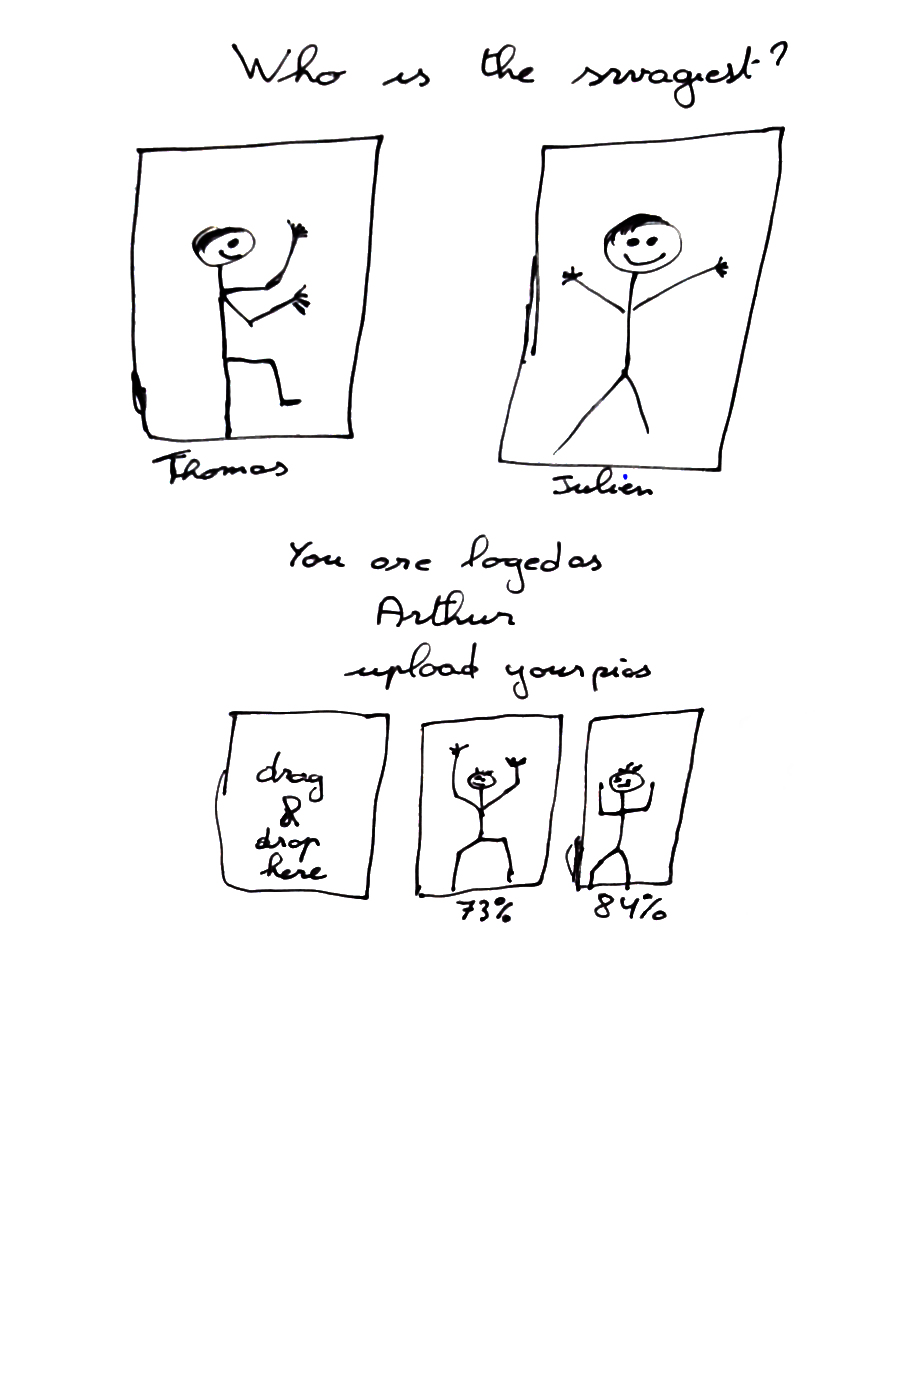 Who is the swagiest?
Thomas
Julien
You are loged as
Arthur
upload your pics
drag
&
drop
here
73%
84%